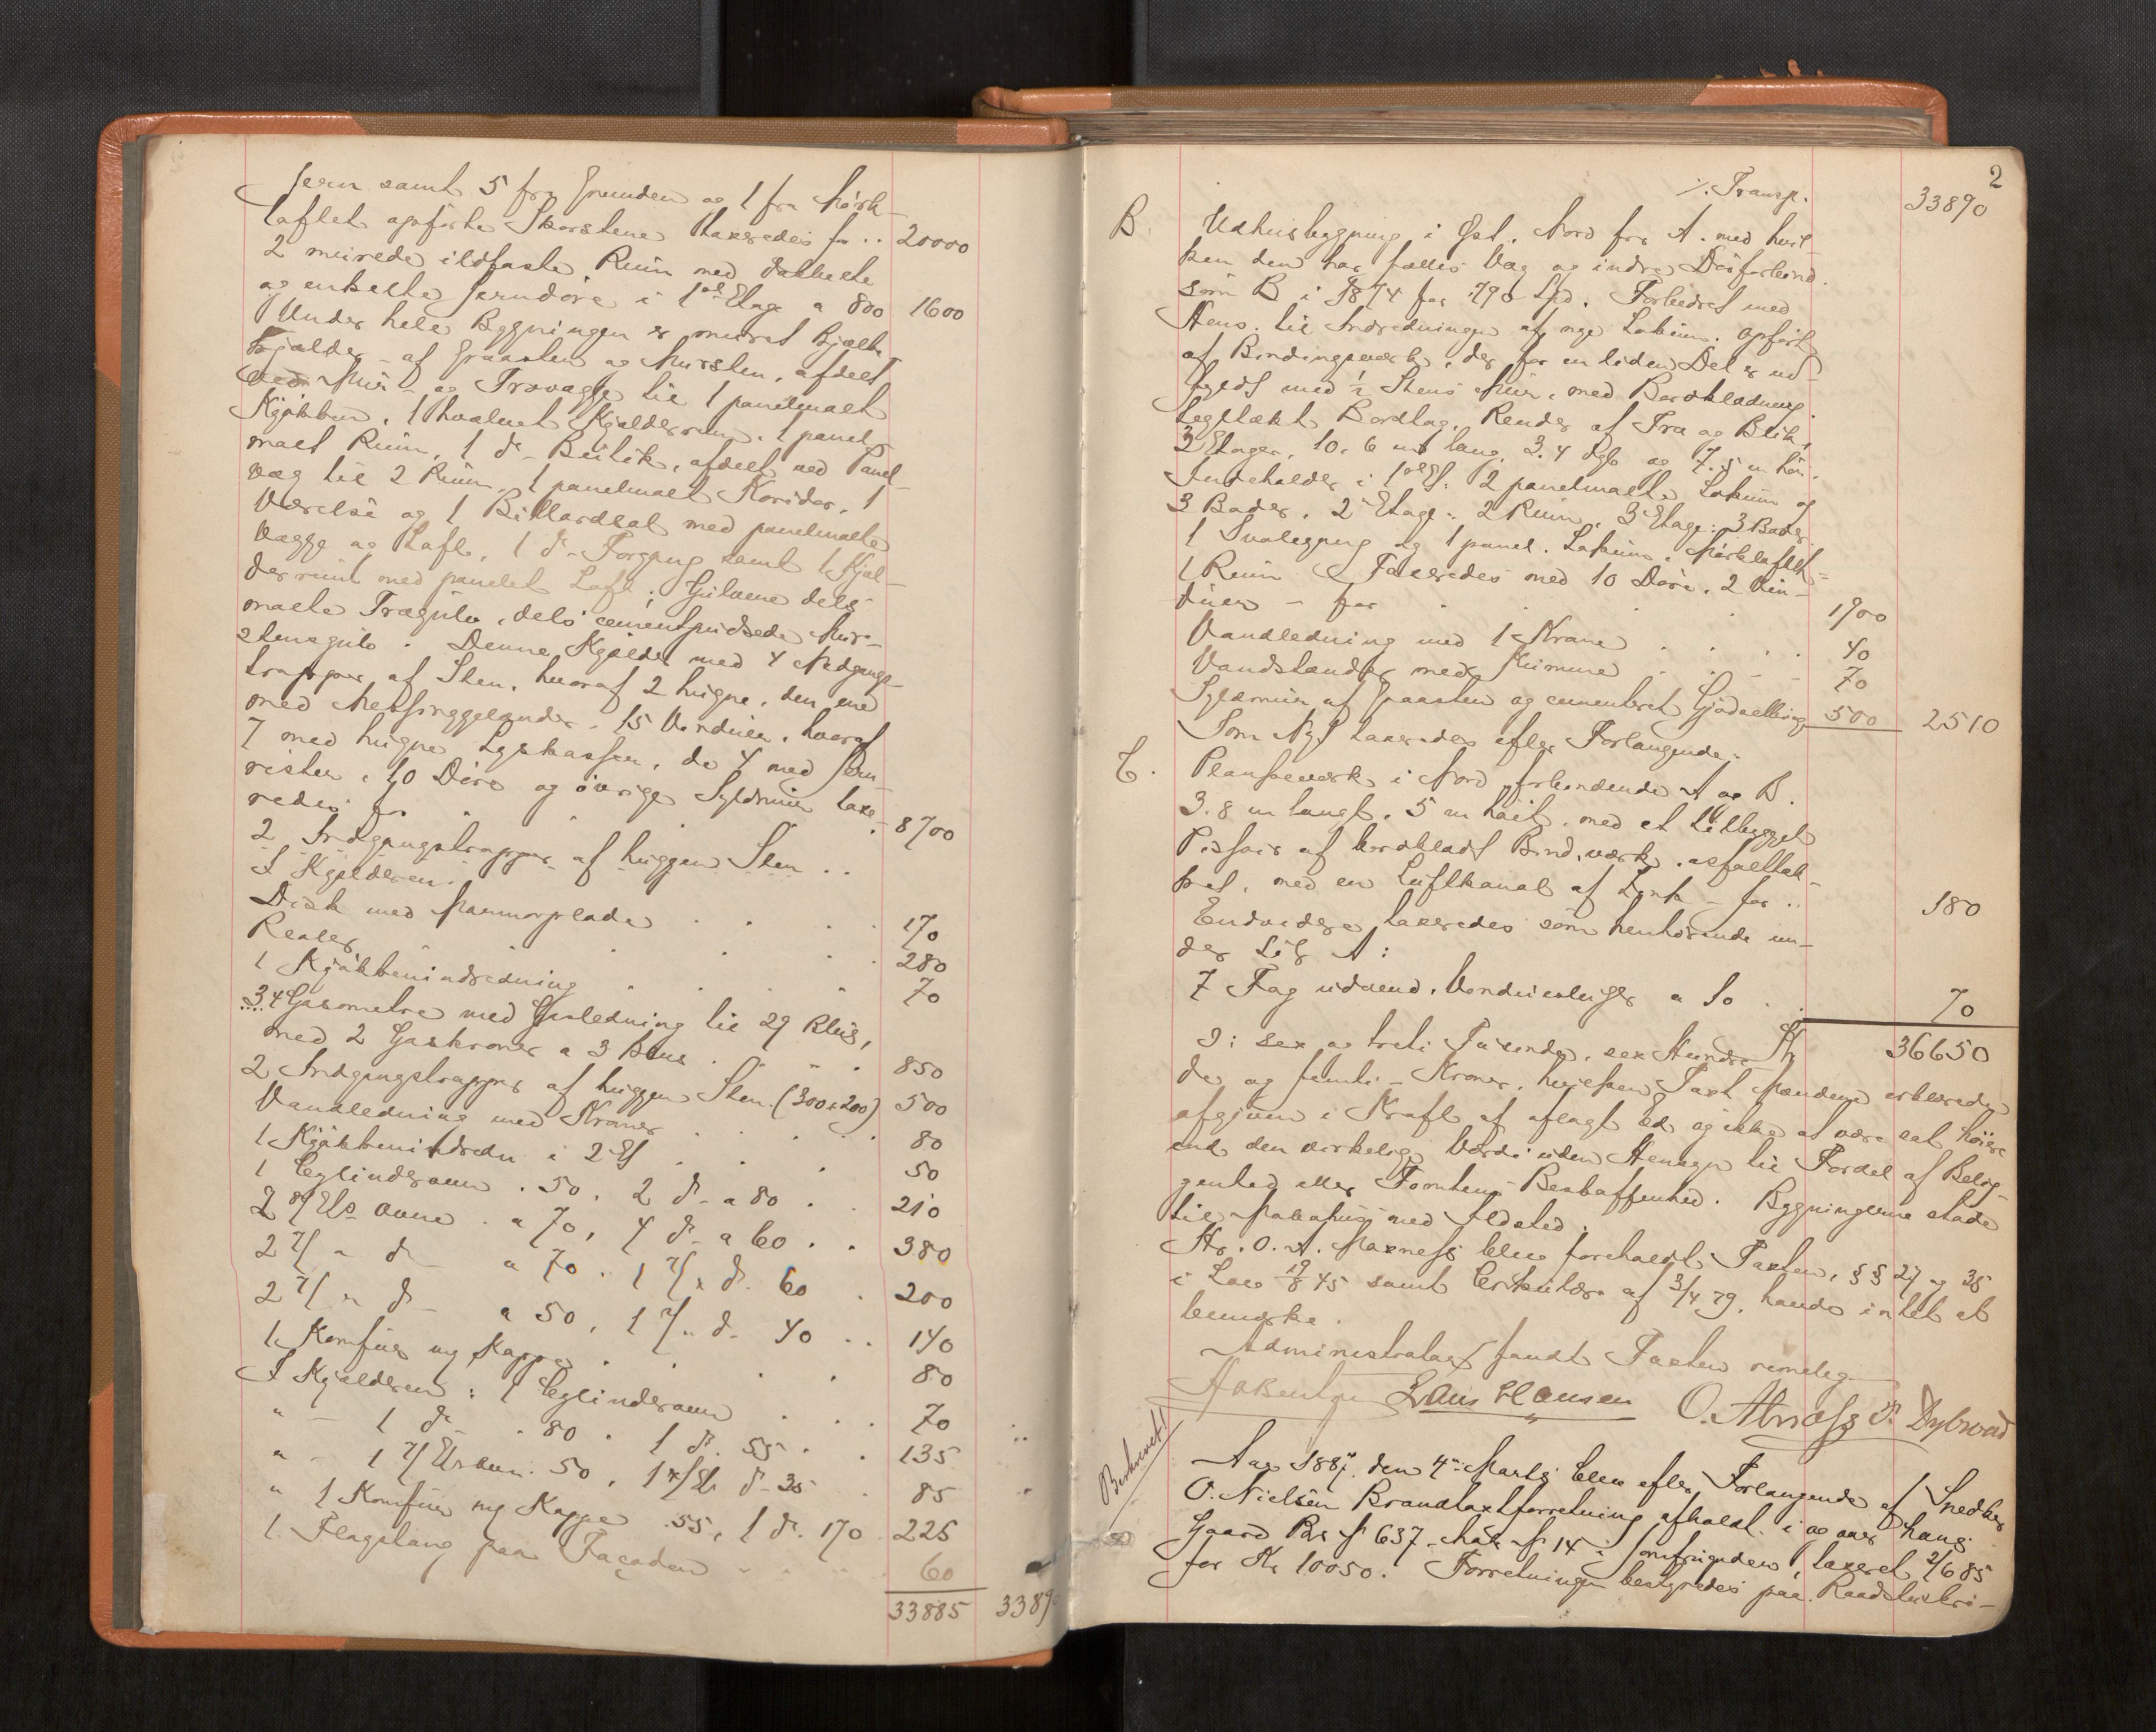 Jern samt 5 fra Grunden og 1 fra Mörk-
loftet opförte Skorstene taxeredes for .. 20000
2 murede ildfaste Rum med dobbelte
og enkelte Jerndöre i 1ste Etage a 800 1600
Under hele Bygningen er muret Bjælke
Kjælder - af Graasten og Mursten, afdelt
ved Mur- og Trævægge til 1 panelmalt
Kjökken, 1 hvælvet Kjælderrum, 1 panel-
malt Rum, 1 do Butik, afdelt ved Panel-
væg til 2 Rum, 1 panelmalt Koridor, 1
Værelse og 1 Billardsal med panelmalte
Vægge og Loft, 1 do Forgang samt 1 Kjæl-
derrum med panelet Loft. Gulvene dels
malte Trægulv, dels cementpudsede Mur-
stensgulv. Denne Kjælder med 4 Nedgangs-
trapper af Sten, hvoraf 2 hugne, den ene
med Messinggelænder. 15 Vinduer, hvoraf
7 med hugne Lyskasser, de 4 med Jern-
rister, 10 Döre og övrige Syldmur taxe-
redes for . . . . 8700
2 Indgangstrapper af huggen Sten ..
I Kjælderen:
Disk med Marmorplade . . . 170
Reoler . . . . 280
1 Kjökkenindredning . . . 70
34 Gasometre med Gasledning til 29 Blus,
med 2 Gaskroner a 3 Blus . . . 850
2 Indgangstrapper af huggen Sten (300 & 200) 500
Vandledning med Kraner . . . 80
1 Kjökkenindredn i 2 Et . . . 50
1 Cylinderovn . 50. 2 do a 80 . . 210
2 Et ovne . a 70, 4 do a 60 . . 380
2 " do a 70. 1 " do 60 . 200
2 " do a 50, 1 " do 40 .. 140
1 Komfur mg Kappe . . . . 80
I Kjælderen: 1 Cylinderovn . . . 70
" - 1 do . 80. 1 do. 55 . . 135
" - 1 Et ovn. 50, 1 do 35 . 85
" 1 Komfur mg Kappe 55, 1 do. 170 225
1 Flagstang paa Façaden - - - 60
33885 33890
2
./. Transp. 33890
B. Udhusbygning i Öst. Nord for A. med hvil-
ken den har fælles Væg og indre Dörforbind.
som B i 1874 for 790 Spd. Forbedret med
Hens. til Indredningen af nye Lokum. Opfört
af Bindingsverk, der for en liden Del er ud-
fyldt med ½ Stens Mur, med Bordklædning.
tegllækt Bordtag, Render af Træ og Blik,
3 Etager, 10.6 m lang, 3.4 dyb og 7.5 m höi.
Indeholder i 1ste Et: 2 panelmalte Lokum og
3 Boder, 2 Etage: 2 Rum, 3 Etage: 3 Boder
1 Svalegang og 1 panel. Lokum. Mörkloftet:
1 Rum. Taxeredes med 10 Döre, 2 Vin-
duer - for . . . . 1900
Vandledning med 1 Krane . . . . 40
Vandstander med Kumme . . - - 70
Syldmur af Graasten og cementeret Gjödselbing 500 2510
Som Nyt taxeredes efter Forlangende:
C. Plankeværk i Nord forbindende A og B.
3.8 m langt, 5 m höit, med et tilbygget
Pissoir af bordklædt Bind.værk, asfalttæk-
ket, med en Luftkanal af Zink - for .. 180
Endvidere taxeredes som henhörende un-
der Lit A:
7 Fag udvend. Vinduesluger a 10 . . 70
Kr 36650
ɔ: sex og treti Tusinde, sex Hundre-
de og femti - Kroner, hvilken Taxt Mændene erklærede
afgiven i Kraft af aflagt Ed og ikke at være sat höiere
end den virkelige Værdi uden Hensyn til Fordel af Belig-
genhed eller Tomtens Beskaffenhed. Bygningerne stode
til Matrhus med Ildsted.
Hr. O. A. Maxness blev foreholdt Taxten, §§ 27 og 35
i Lov 19/8 45 samt Cirkulære af 3/4 79, havde intet at
bemærke.
Administrator fandt Taxten rimelig
Lars Hansen Dybwad
Beskrevet!
Aar 1887, den 4de Marts blev efter Forlangende af Snedker
O. Nielsen Brandtaxtforretning afholdt i og over hans
Gaard Br No 637, Matr No 14 i Jomfrugaden, taxeret 2/6 85
for Kr 10050. Forretningen bestyredes paa Raadstueskri-